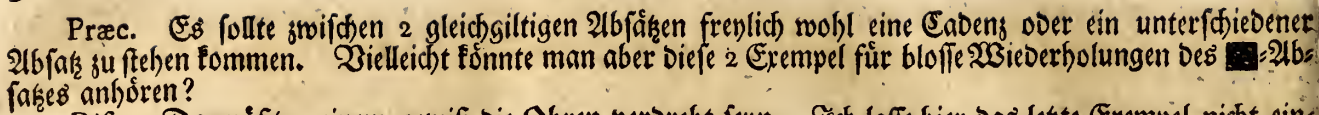 Præc. Es sollte zwischen 2 gleichgiltigen Absätzen freylich wohl eine Cadenz oder ein unterschiedener
Absatz zu stehen kommen. Vielleicht könnte man aber diese 2 Exempel für blosse Wiederholungen des =Ab=
satzes anhören?